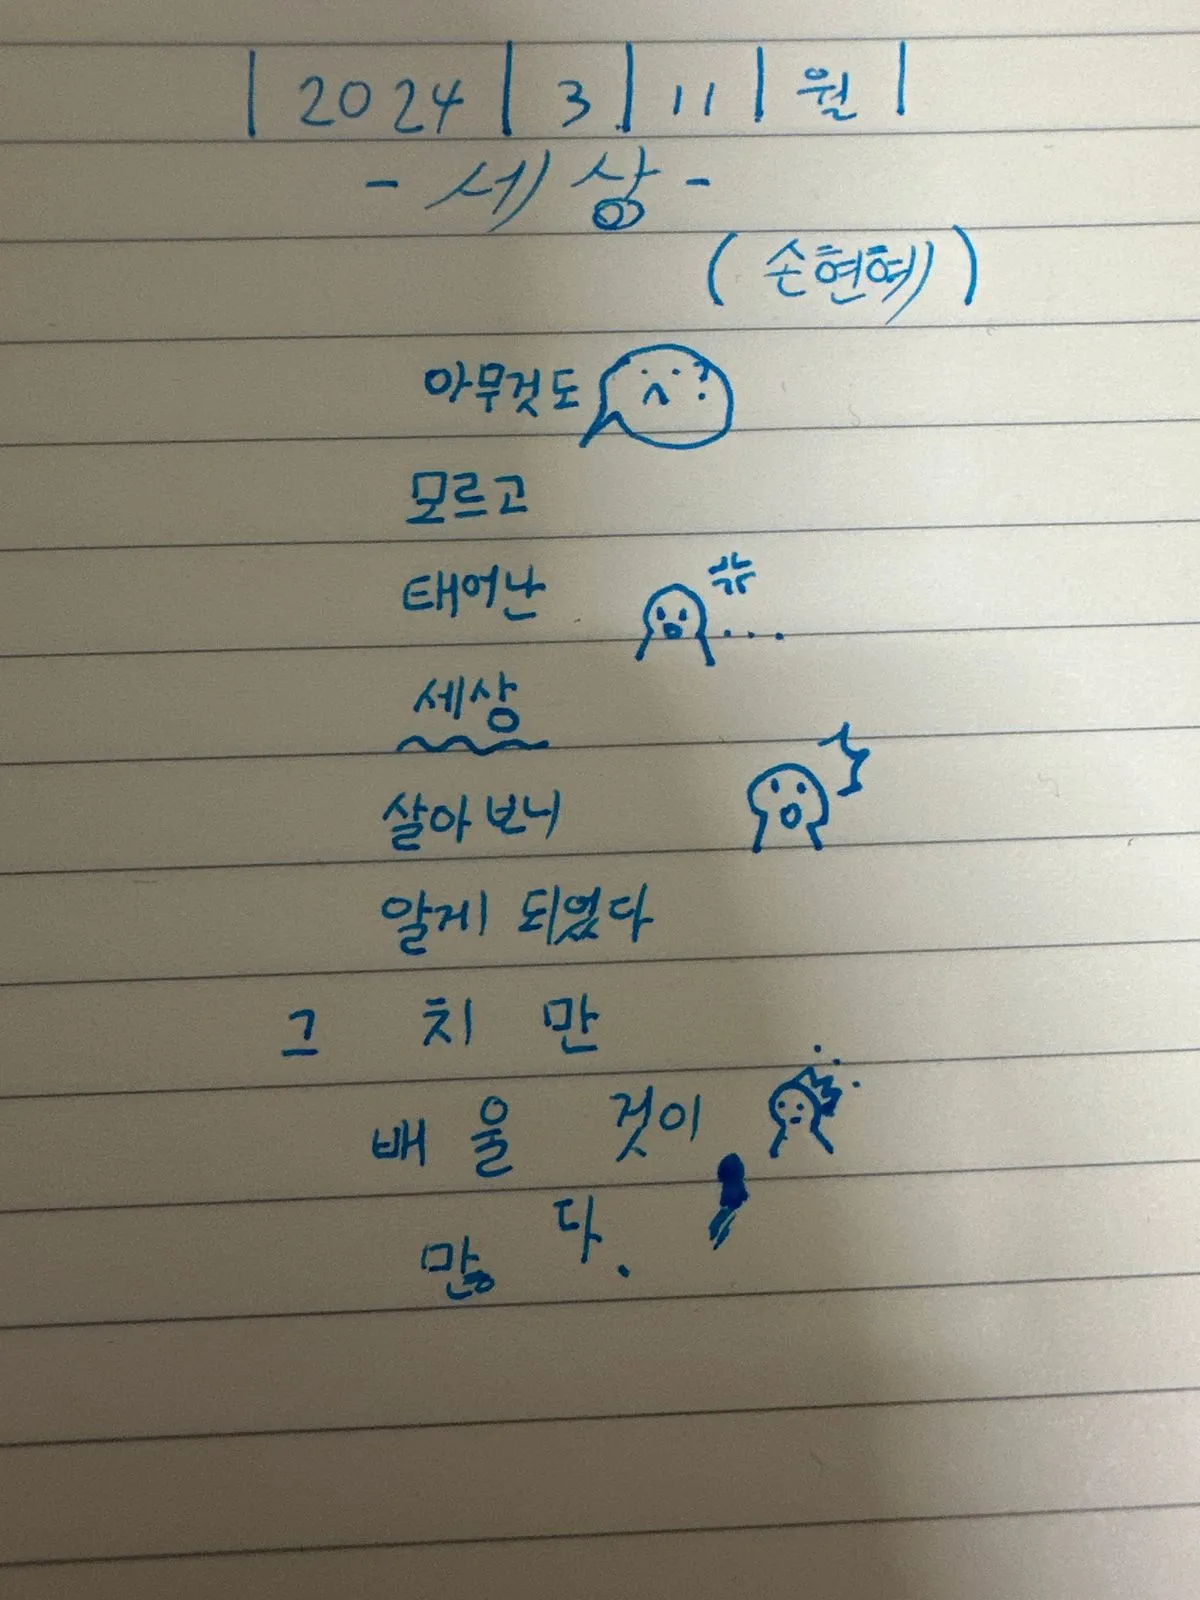 | 2024 | 3 | 11 | 월 |
- 세상 -
(손현혜)
아무것도
모르고
태어난
세상
살아보니
알게 되었다
그 치 만
배 울 것이
많 다.